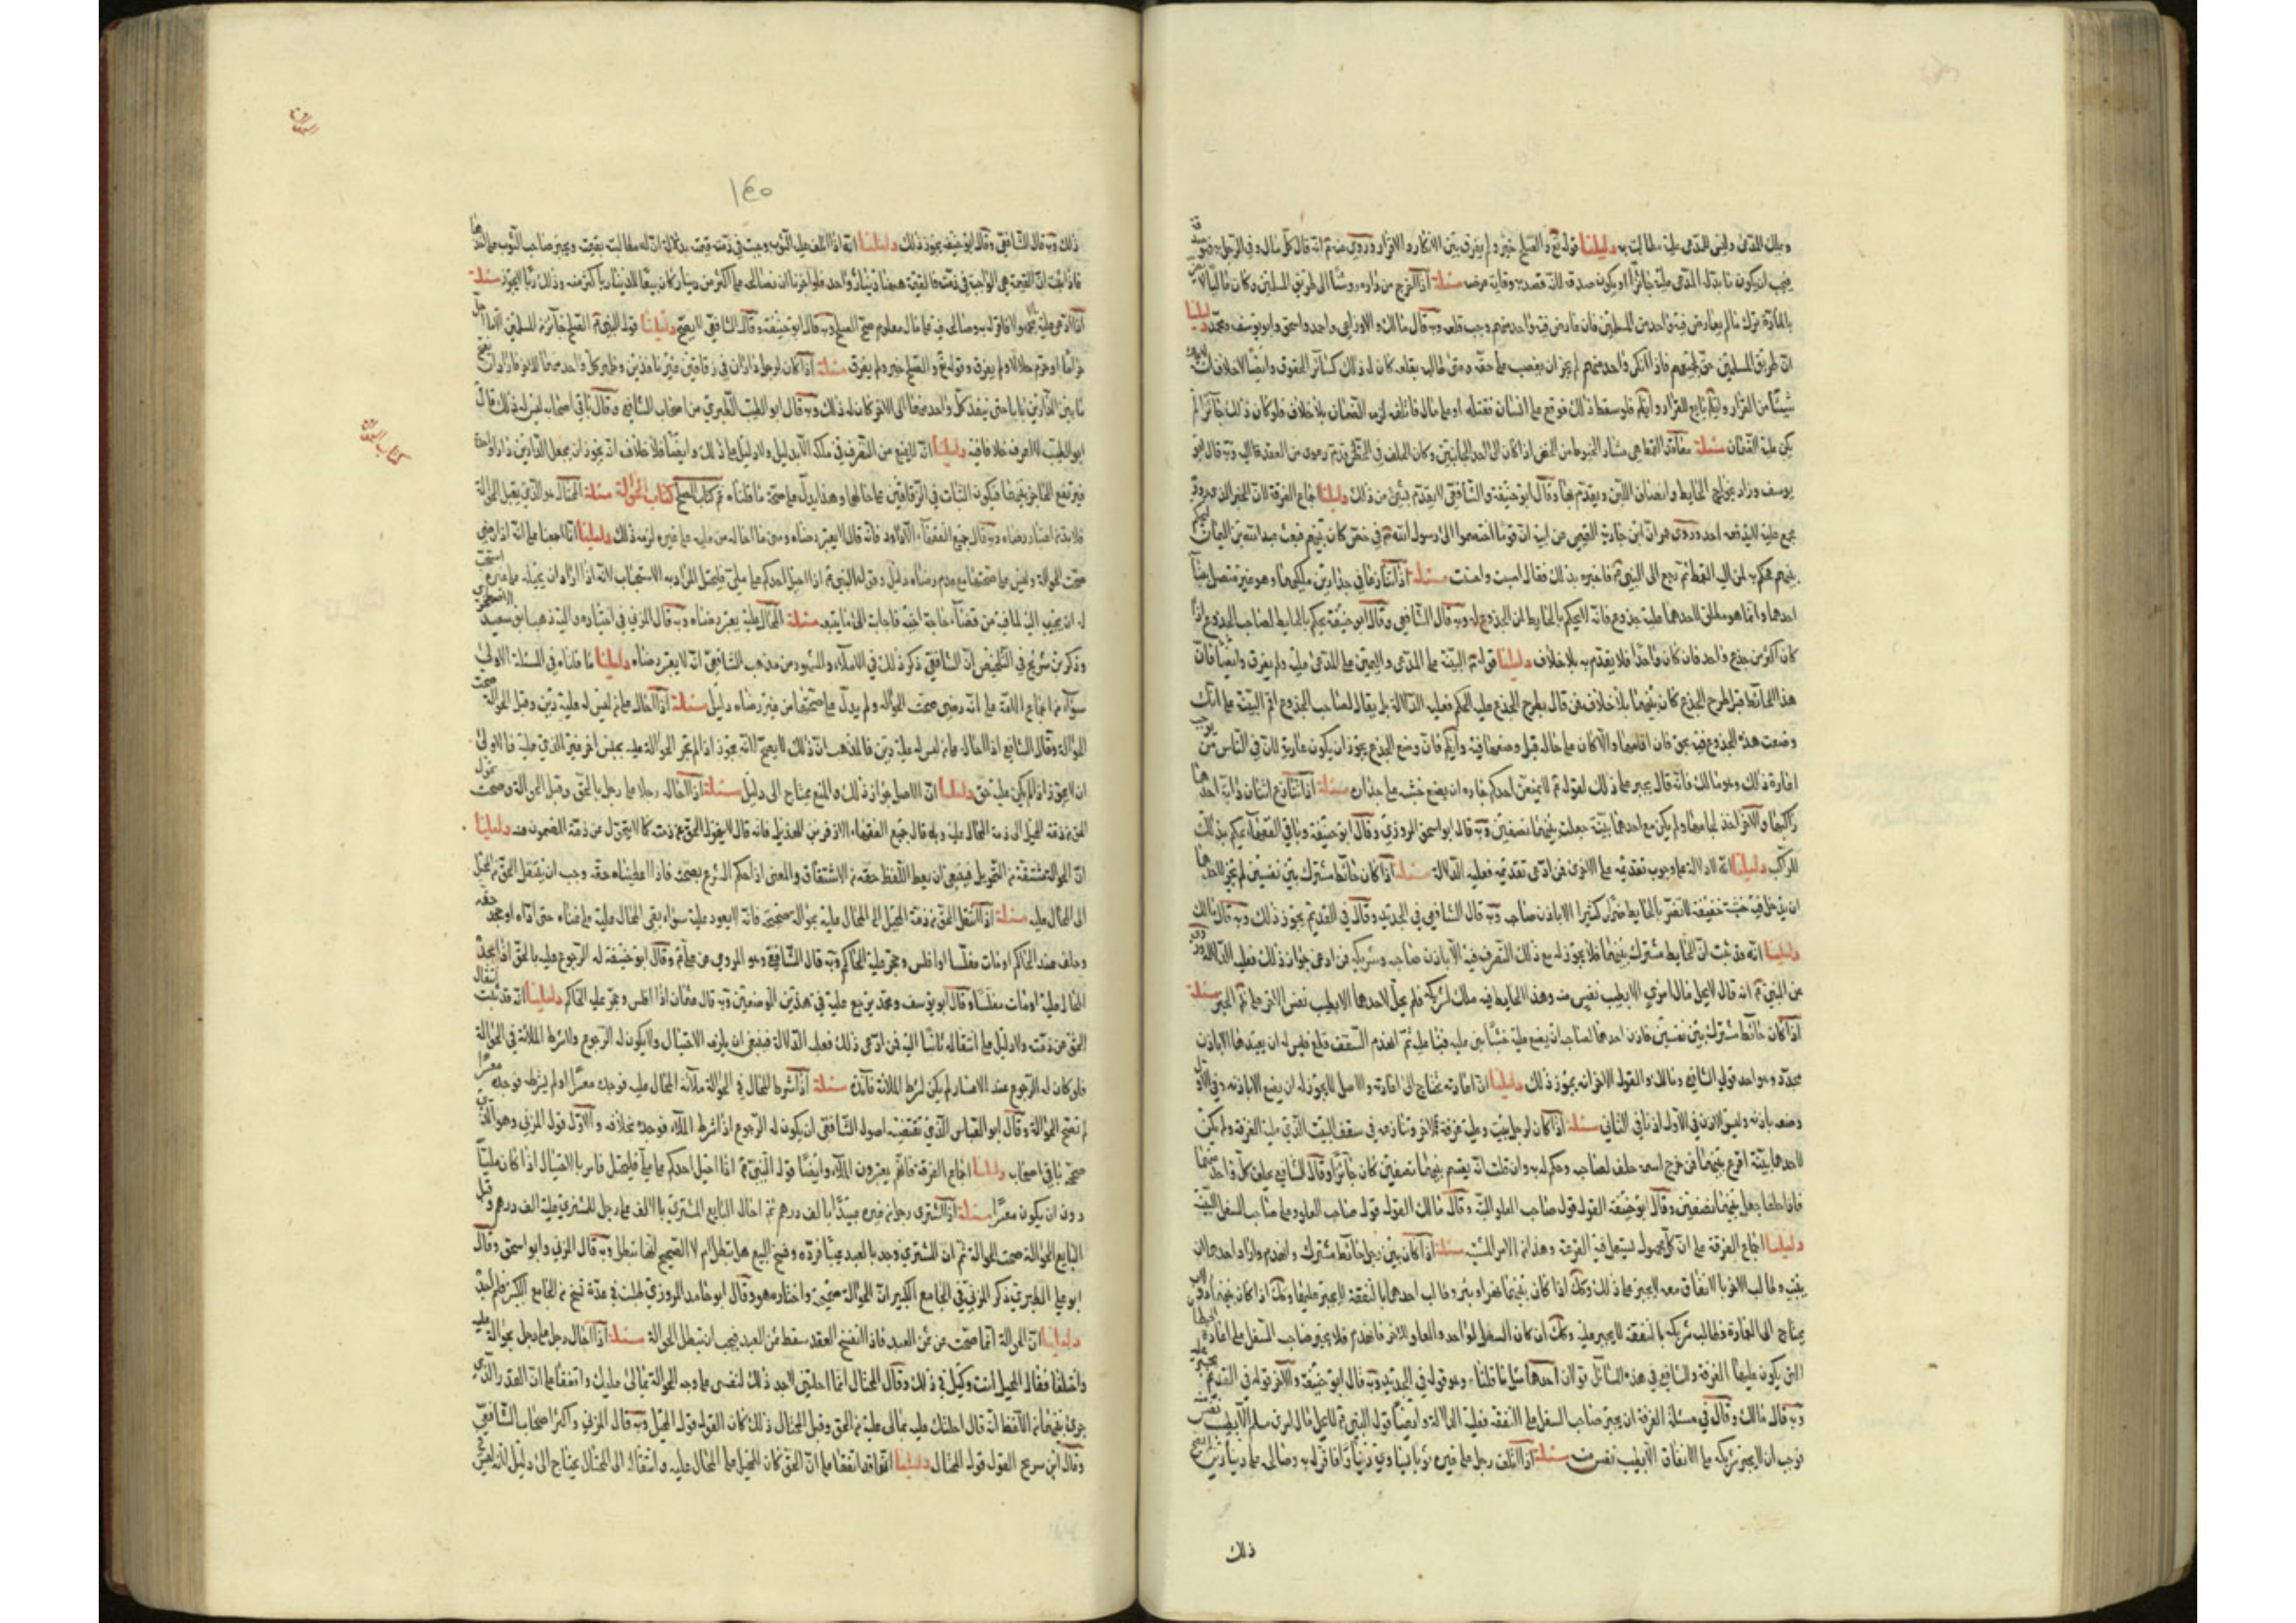 ويملك المدعي وليس للمدعى عليه مطالبته به دليلنا قوله تع والصلح خير ولم يفرق بين الانكار والاقرار وروي عنه ع انه قال كل مال وقى الرجل به عرضه
فيجب ان يكون ما بذله المدعى عليه جائزا او يكون صدقة لانه قصد به وقاية عرضه مسئلة اذا اخرج من داره روشنا الى طريق المسلمين وكان عاليا لا
بالمارة ترك ما لم يعارض فيه واحد من المسلمين فان عارض فيه واحد منهم وجب قلعه وبه قال مالك والاوزاعي واحمد واسحق وابو يوسف ومحمد دليلنا
ان طريق المسلمين حق لجميعهم فاذا انكر واحد منهم لم يجز ان يغصب على حقه ومتى طالب بقلعه كان له ذلك كسائر الحقوق وايضا لا خلاف انه
شيئا من القرار والهواء تابع للقرار فلو سقط ذلك فوقع على انسان فقتله او على مال فاتلفه لزمه الضمان بلا خلاف فلو كان ذلك جائزا لم
يكن عليه الضمان مسئلة معاقد القمط هي مشار الخيوط من الخص اذا كان الى احد الجانبين وكان الخلف في الخص قدم دعوى من العقد اليه وبه قال ابو
يوسف وزاد بخوارج الحايط وانصاف اللبن ويقدم بها وقال ابو حنيفة والشافعي لا يقدم بشيء من ذلك دليلنا اجماع الفرقة لان الخبر الذي روي
مجمع عليه لا يدفعه احد وروى نمران ابن جارية التميمي عن ابيه ان قوما اختصموا الى رسول الله ص في خص كان بينهم فبعث عبد الله بن اليمان
بينهم فحكم به لمن اليه القمط ثم رجع الى النبي ع فاخبره بذلك فقال اصبت واحسنت مسئلة اذا تنازعا في جدار بين ملكيهما وهو غير متصل ببناء
احدهما وانما هو مطلق لاحدهما عليه جذوع فانه لا يحكم بالحايط لمن الجذوع له وبه قال الشافعي وقال ابو حنيفة يحكم بالحايط لصاحب الجذوع اذا
كان اكثر من جذع واحد فان كان واحدا فلا يقدم به بلا خلاف دليلنا قوله ع البينة على المدعي واليمين على المدعى عليه ولم يفرق وايضا فان
هذا الحائط قبل طرح الجذع كان بينهما بلا خلاف فمن قال بطرح الجذع عليه الحكم فعليه الدلالة بل يقال لصاحب الجذوع اقم البينة على انك
وضعت هذه الجذوع فيه بحق فان اقامها والا كان على حاله قبل وضعها فيه وايضا فان وضع الجذع يجوز ان يكون عارية لان في الناس من يوجب
اعارة ذلك وهو مالك فانه قال يجبر على ذلك لقوله ع لا يمنعن احدكم جاره ان يضع خشبه على جداره مسئلة اذا تنازع اثنان دابة احدهما
راكبها والآخر آخذ لجامها ولم يكن مع احدهما بينة جعلت بينهما نصفين وبه قال ابو اسحق المروزي وقال ابو حنيفة وباقي الفقهاء يحكم بذلك
للراكب دليلنا انه لا دلالة على وجوب تقديمه على الآخر فمن ادعى تقديمه فعليه الدلالة مسئلة اذا كان حائط مشترك بين نفسين لم يجز لاحدهما
ان يدخل فيه خشبة خفيفة لا تضر بالحايط ضررا كثيرا الا باذن صاحبه وبه قال الشافعي في الجديد وقال في القديم يجوز ذلك وبه قال مالك
دليلنا انه قد ثبت ان الحايط مشترك بينهما فلا يجوز له مع ذلك التصرف فيه الا باذن صاحبه وشريكه فمن ادعى جواز ذلك فعليه الدلالة وروي
عن النبي ع انه قال لا يحل مال امرئ الا بطيب نفس منه وهذا الحايط فيه ملك لشريكه فلم يحل لاحدهما الا بطيب نفس الاخر على الخبر مسئلة
اذا كان حائط مشترك بين نفسين فاذن احدهما لصاحبه ان يضع عليه خشبا يبني عليه فبنا عليه ثم انهدم السقف قلع فليس له ان يعيدها الا باذن
مجدد وهو احد قولي الشافعي ومالك والقول الاخر انه يجوز ذلك دليلنا ان اعادته تحتاج الى اعادة والاصل لا يجوز له ان يضع الا باذنه وفي الاول
وضعه باذنه وليس الاذن في الاول اذنا في الثاني مسئلة اذا كان لرجل بيت وعليه غرفة لاخر وتنازعه في سقف البيت الذي عليه الغرفة ولم يكن
لاحدهما بينة اقرع بينهما فمن خرج اسمه حلف لصاحبه وحكم له به وان قلت انه يقسم بينهما نصفين كان جائزا وقال الشافعي يحلف كل واحد منهما
فاذا حلفا جعل بينهما نصفين وقال ابو حنيفة القول قول صاحب العلو البتة وقال مالك القول قول صاحب العلو وعلى صاحب السفل البينة
دليلنا اجماع الفرقة على ان كل مجهول يستعمل فيه القرعة وهذا من الامر المشتبه مسئلة اذا كان بين رجلين حائط مشترك وانهدم واراد احدهما ان
يبنيه وطالب الاخر بالانفاق معه لا يجبر على ذلك وكذلك اذا كان بينهما نهر او بئر وطالب احدهما بالنفقة لا يجبر عليها وكذلك اذا كان بينهما دولاب
يحتاج الى العمارة فطالب شريكه بالنفقة لا يجبر عليه وكذلك ان كان السفل لواحد والعلو لاخر فانهدم فلا يجبر صاحب السفل على اعادة الحيطان
التي يكون عليها الغرفة والشافعي في هذه المسائل قولان احدهما مثل ما قلناه وهو قوله في الجديد وبه قال ابو حنيفة والاخر قوله في القديم يجبر عليه
وبه قال مالك وقال في مسئلة الغرفة ان يجبر صاحب السفل على النفقة فعليه الدلالة وايضا قول النبي ع لا يحل مال امرئ مسلم الا بطيب نفس
فوجب ان لا يجبر شريكه على الانفاق الا بطيب نفس منه مسئلة اذا اتلف رجل على غيره ثوبا يساوي دينارا فاقر له به وصالحه على دينارين لم يصح
ذلك
١٤٥
ذلك وبه قال الشافعي وقال ابو حنيفة يجوز ذلك دليلنا انه اذا اتلف عليه الثوب وجبت في ذمته قيمته بدلالة ان له مطالبته بقيمته ويجبر صاحب الثوب على اخذها
فاذا ثبت ان القيمة هي الواجبة في ذمته فالقيمة ههنا دينار واحد فلو اجزنا ان يصالحه على اكثر من دينار كان بيعا للدينار باكثر منه وذلك ربا لا يجوز مسئلة
اذا ادعى عليه مجهولا فاقر له به وصالحه فيه على مال معلوم صح الصلح وبه قال ابو حنيفة وقال الشافعي لا يصح دليلنا قول النبي ع الصلح جائز بين المسلمين الا ما احل
حراما او حرم حلالا ولم يفرق وقوله تع والصلح خير ولم يفرق مسئلة اذا كان لرجل داران في زقاقين غير نافذين وظهر كل واحد منهما للاخر فاراد ان يفتح
ما بين الدارين بابا حتى ينفذ كل واحد منهما الى الاخر كان له ذلك وبه قال ابو الطيب الطبري من اصحاب الشافعي وقال باقي اصحابه ليس له ذلك قال
ابو الطيب لا اعرف خلافا فيه دليلنا انه لا يمنع من التصرف في ملكه الا بدليل ولا دليل على ذلك وايضا فلا خلاف انه يجوز ان يجعل الدارين دارا واحدة
فيرتفع الحاجز بينهما فيكون الثبات في الزقاقين على حالهما وهذا يدل على صحة ما قلناه تم كتاب الصلح كتاب الحوالة مسئلة المحتال هو الذي يقبل الحوالة
فلا بد من اعتبار رضاه وبه قال جميع الفقهاء الا داود فانه قال لا يعتبر رضاه ومتى ما احاله من عليه على غيره لزمه ذلك دليلنا انا اجمعنا على انه اذا رضي
صحت الحوالة وليس على صحتها مع عدم رضاه دليل وقول النبي ع اذا احيل احدكم على مليء فليحتل المراد به الاستحباب لانه اذا اراد ان يحيله على غيره استحب
له ان يجيب اليه لما فيه من قضاء حاجة اخيه فاجابته الى ما يبتغيه مسئلة المحال عليه يعتبر رضاه وبه قال المزني في اختياره واليه ذهب ابو سعيد الاصطخري
وذكر بن سريج في التلخيص ان الشافعي ذكر ذلك في الاملاء والمشهور من مذهب الشافعي انه لا يعتبر رضاه دليلنا ما قلناه في المسئلة الاولى
سواء من اجماع الامة على انه رضي صحت الحوالة ولم يدل على صحتها من غير رضاه دليل مسئلة اذا احال على من ليس له عليه دين وقبل الحوالة صحت
الحوالة وقال الشافعي اذا احاله على من ليس له عليه دين فالمذهب ان ذلك لا يصح لانه يجوز اذا لم تجز الحوالة عليه بجنس اخر غير الذي عليه فالاولى
ان لا يجوز اذا لم يكن عليه حق دليلنا ان الاصل جواز ذلك والمنع يحتاج الى دليل مسئلة اذا احال رجلا على رجل بالحق وقبل الحوالة وصحت تحول
الحق من ذمة المحيل الى ذمة المحال عليه وبه قال جميع الفقهاء الا زفر بن الهذيل فانه قال لا يتحول الحق عن ذمته كما لا يتحول من ذمة المضمون عنه دليلنا
ان الحوالة مشتقة من التحويل فينبغي ان يعطى اللفظ حقه من الاشتقاق والمعنى اذا حكم الشرع بصحته فاذا اعطيناه حقه وجب ان ينتقل الحق من المحيل
الى المحال عليه مسئلة اذا انتقل الحق من ذمة المحيل الى المحال عليه بحوالة صحيحة فانه لا يعود عليه سواء بقي المحال عليه على غناه حتى اداه او جحده حقه
وحلف عند الحاكم او مات مفلسا او افلس وحجر عليه الحاكم وبه قال الشافعي وهو المروي عن علي ع وقال ابو حنيفة له الرجوع عليه بالحق اذا جحد
المحال عليه او مات مفلسا وقال ابو يوسف ومحمد يرجع عليه في هذين الموضعين وبه قال عثمان اذا افلس وحجر عليه الحاكم دليلنا انه قد ثبت انتقال
الحق من ذمته ولا دليل على انتقاله ثانيا اليه فمن ادعى ذلك فعليه الدلالة فينبغي ان يلزمه الاحتيال ولا يكون له الرجوع ولا شرط الملائة في الحوالة
فلو كان له الرجوع عند الاعسار لم يكن لشرط الملائة فائدة مسئلة اذا شرط المحال في الحوالة ملائة المحال عليه فوجده معسرا او لم يشرط فوجده معسرا
لم تفسخ الحوالة وقال ابو العباس الذي تقتضيه اصول الشافعي ان يكون له الرجوع اذا شرط الملاء فوجده بخلافه والاول قول المزني وهو الذي
صححه باقي اصحابه دليلنا اجماع الفرقة فانهم يعتبرون الملاء وايضا قول النبي ع اذا احيل احدكم على مليء فليحتل فامر بالاحتيال اذا كان مليا
دون ان يكون معسرا مسئلة اذا اشترى رجل من غيره عبدا بالف درهم ثم احال البايع المشتري بالالف على رجل للمشتري عليه الف درهم وقبل
البايع الحوالة صحت الحوالة ثم ان المشتري وجد بالعبد عيبا فرده وفسخ البيع هل تبطل ام لا الصحيح انها تبطل وبه قال المزني وابو اسحق وقال
ابو علي الطبري ذكر المزني في الجامع الكبير ان الحوالة صحيحة واختاره هو وقال ابو حامد المروزي طلبت في عدة نسخ من الجامع الكبير فلم اجد
دليلنا ان الحوالة انما صحت من ثمن العبد فاذا انفسخ العقد سقط ثمن العبد فيجب ان تبطل الحوالة مسئلة اذا احال رجل على رجل بحوالة عليه
واختلفا فقال المحيل انت وكيلي في ذلك وقال المحتال انما احلتني لاخذ ذلك لنفسي على وجه الحوالة بمالي عليك واتفقا على ان القدر الذي
جرى بينهما من الالفاظ انه قال احلتك عليه بمالي عليه من الحق وقبل المحتال ذلك كان القول قول المحيل وبه قال المزني واكثر اصحاب الشافعي
وقال ابن سريج القول قول المحتال دليلنا انهما قد اتفقا على ان الحق كان للمحيل على المحال عليه وانتقاله الى المحتال يحتاج الى دليل لانه ليس
كتاب